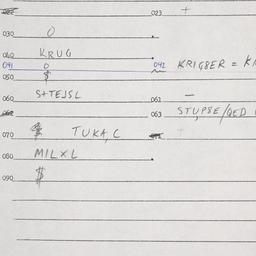 023 +
030 O
040 KRUG
041 O
042 KRIG8ER =
050 $
060 S+TEJSL
061 –
063 STUP8E/QED
070 $ TUKA,C
080 MILXL
090 $